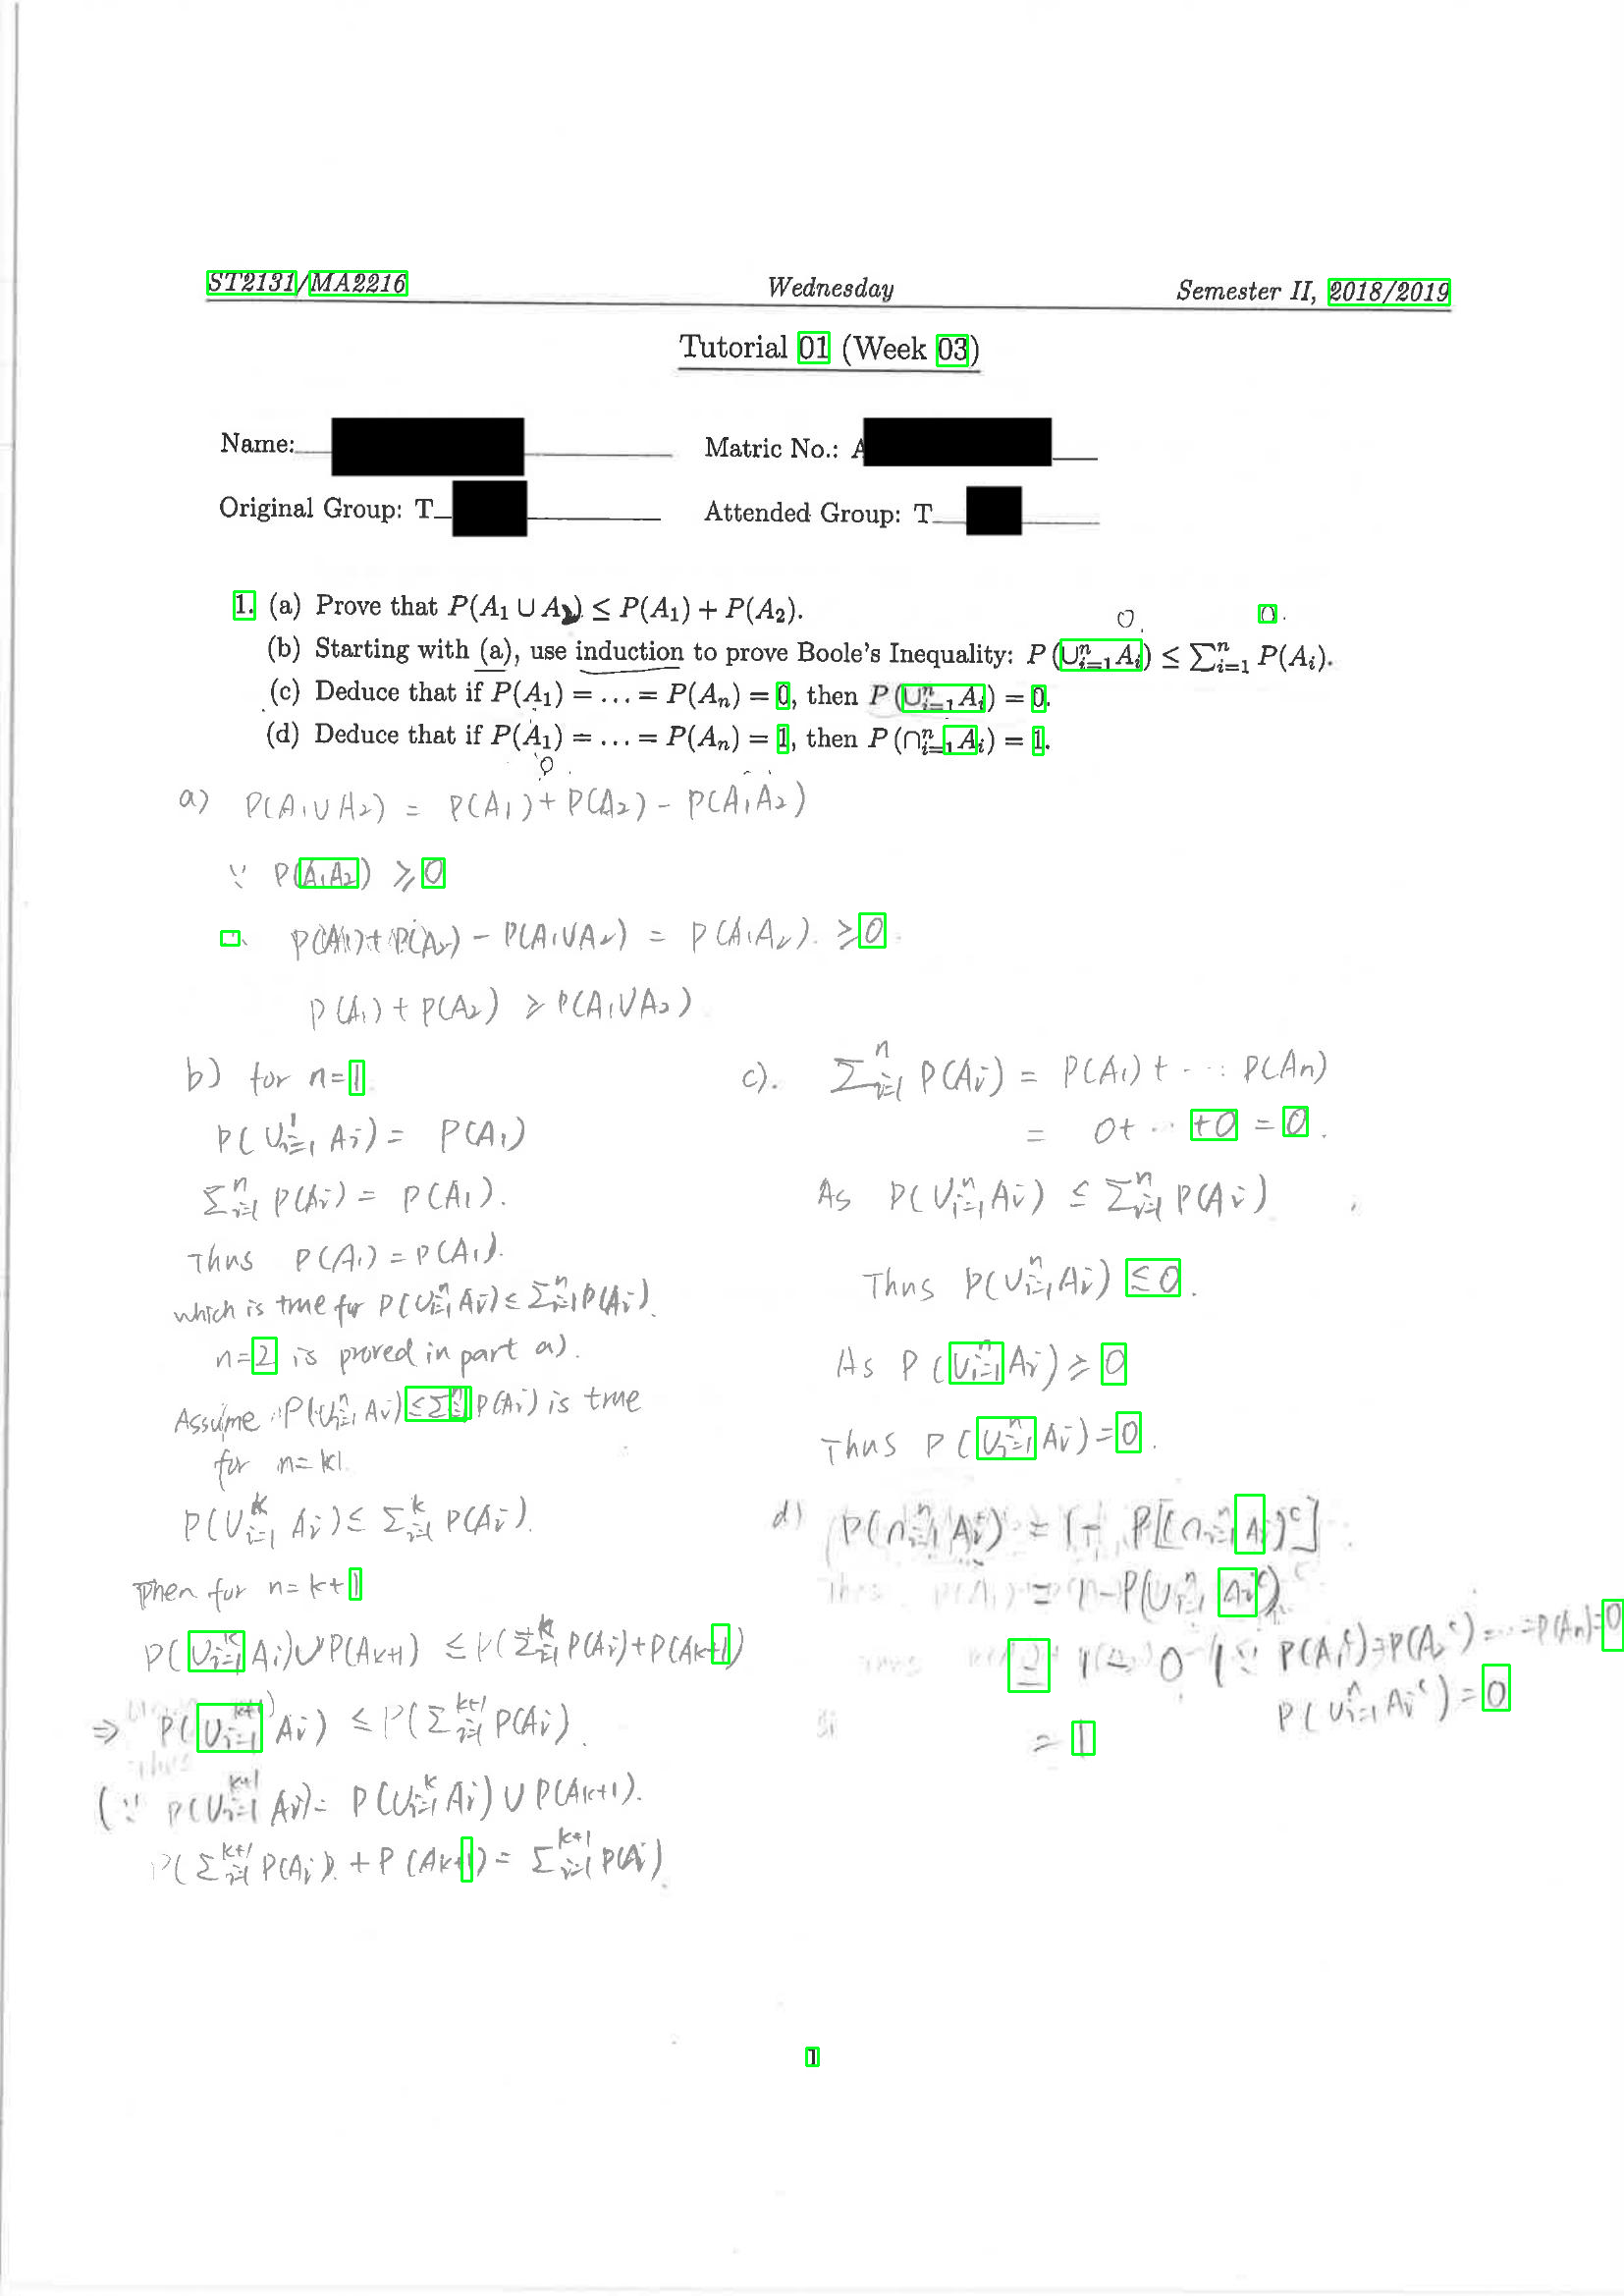 ST2131/MA2216 Wednesday Semester II, 2018/2019
Tutorial 01 (Week 03)
Name: Matric No.: A
Original Group: T Attended Group: T
1. (a) Prove that P(A₁ ∪ A₂) ≤ P(A₁) + P(A₂).
(b) Starting with (a), use induction to prove Boole's Inequality: P(∪ⁿᵢ₌₁Aᵢ) ≤ Σⁿᵢ₌₁ P(Aᵢ).
(c) Deduce that if P(A₁) = ... = P(Aₙ) = 0, then P(∪ⁿᵢ₌₁Aᵢ) = 0.
(d) Deduce that if P(A₁) = ... = P(Aₙ) = 1, then P(∩ⁿᵢ₌₁Aᵢ) = 1.
a) P(A₁∪A₂) = P(A₁)+P(A₂) - P(A₁A₂)
∵ P(A₁A₂) ≥ 0
P(A₁)+P(A₂) - P(A₁∪A₂) = P(A₁A₂). ≥0
P(A₁)+P(A₂) ≥ P(A₁∪A₂)
b) for n=1
P(∪¹ᵢ₌₁ Aᵢ) = P(A₁)
Σⁿᵢ₌₁ P(Aᵢ) = P(A₁).
Thus P(A₁) = P(A₁).
which is true for P(∪ⁿᵢ₌₁Aᵢ) ≤ Σⁿᵢ₌₁P(Aᵢ).
n=2 is proved in part a).
Assume P(∪ⁿᵢ₌₁Aᵢ) ≤ Σⁿᵢ₌₁ P(Aᵢ) is true
for n=k
P(∪ᵏᵢ₌₁ Aᵢ) ≤ Σᵏᵢ₌₁ P(Aᵢ).
Then for n=k+1
P(∪ᵏᵢ₌₁ Aᵢ)∪P(Ak+1) ≤ P(Σᵏᵢ₌₁ P(Aᵢ)+P(Ak+1)
⇒ P(∪ᵏ⁺¹ᵢ₌₁ Aᵢ) ≤ P(Σᵏ⁺¹ᵢ₌₁ P(Aᵢ).
(∵ P(∪ᵏ⁺¹ᵢ₌₁ Aᵢ)= P(∪ᵏᵢ₌₁Aᵢ) ∪ P(Ak+1).
P(Σᵏ⁺¹ᵢ₌₁ P(Aᵢ) + P(Ak+1) = Σᵏ⁺¹ᵢ₌₁ P(Aᵢ)
c). Σⁿᵢ₌₁ P(Aᵢ) = P(A₁)+ ... P(An)
= 0+ ... +0 = 0.
As P(∪ⁿᵢ₌₁Aᵢ) ≤ Σⁿᵢ₌₁ P(Aᵢ)
Thus P(∪ⁿᵢ₌₁Aᵢ) ≤0.
As P(∪ⁿᵢ₌₁Aᵢ) ≥ 0
Thus P(∪ⁿᵢ₌₁Aᵢ)=0.
d) P(∩ⁿᵢ₌₁Aᵢ) = 1- P[(∩ⁿᵢ₌₁Aᵢ)ᶜ]
= 1-P(∪ⁿᵢ₌₁ Aᵢᶜ)
= 1 - 0 ∵ P(A₁ᶜ)=P(A₂ᶜ)=...=P(An)=0
P(∪ⁿᵢ₌₁Aᵢᶜ)=0
= 1
1